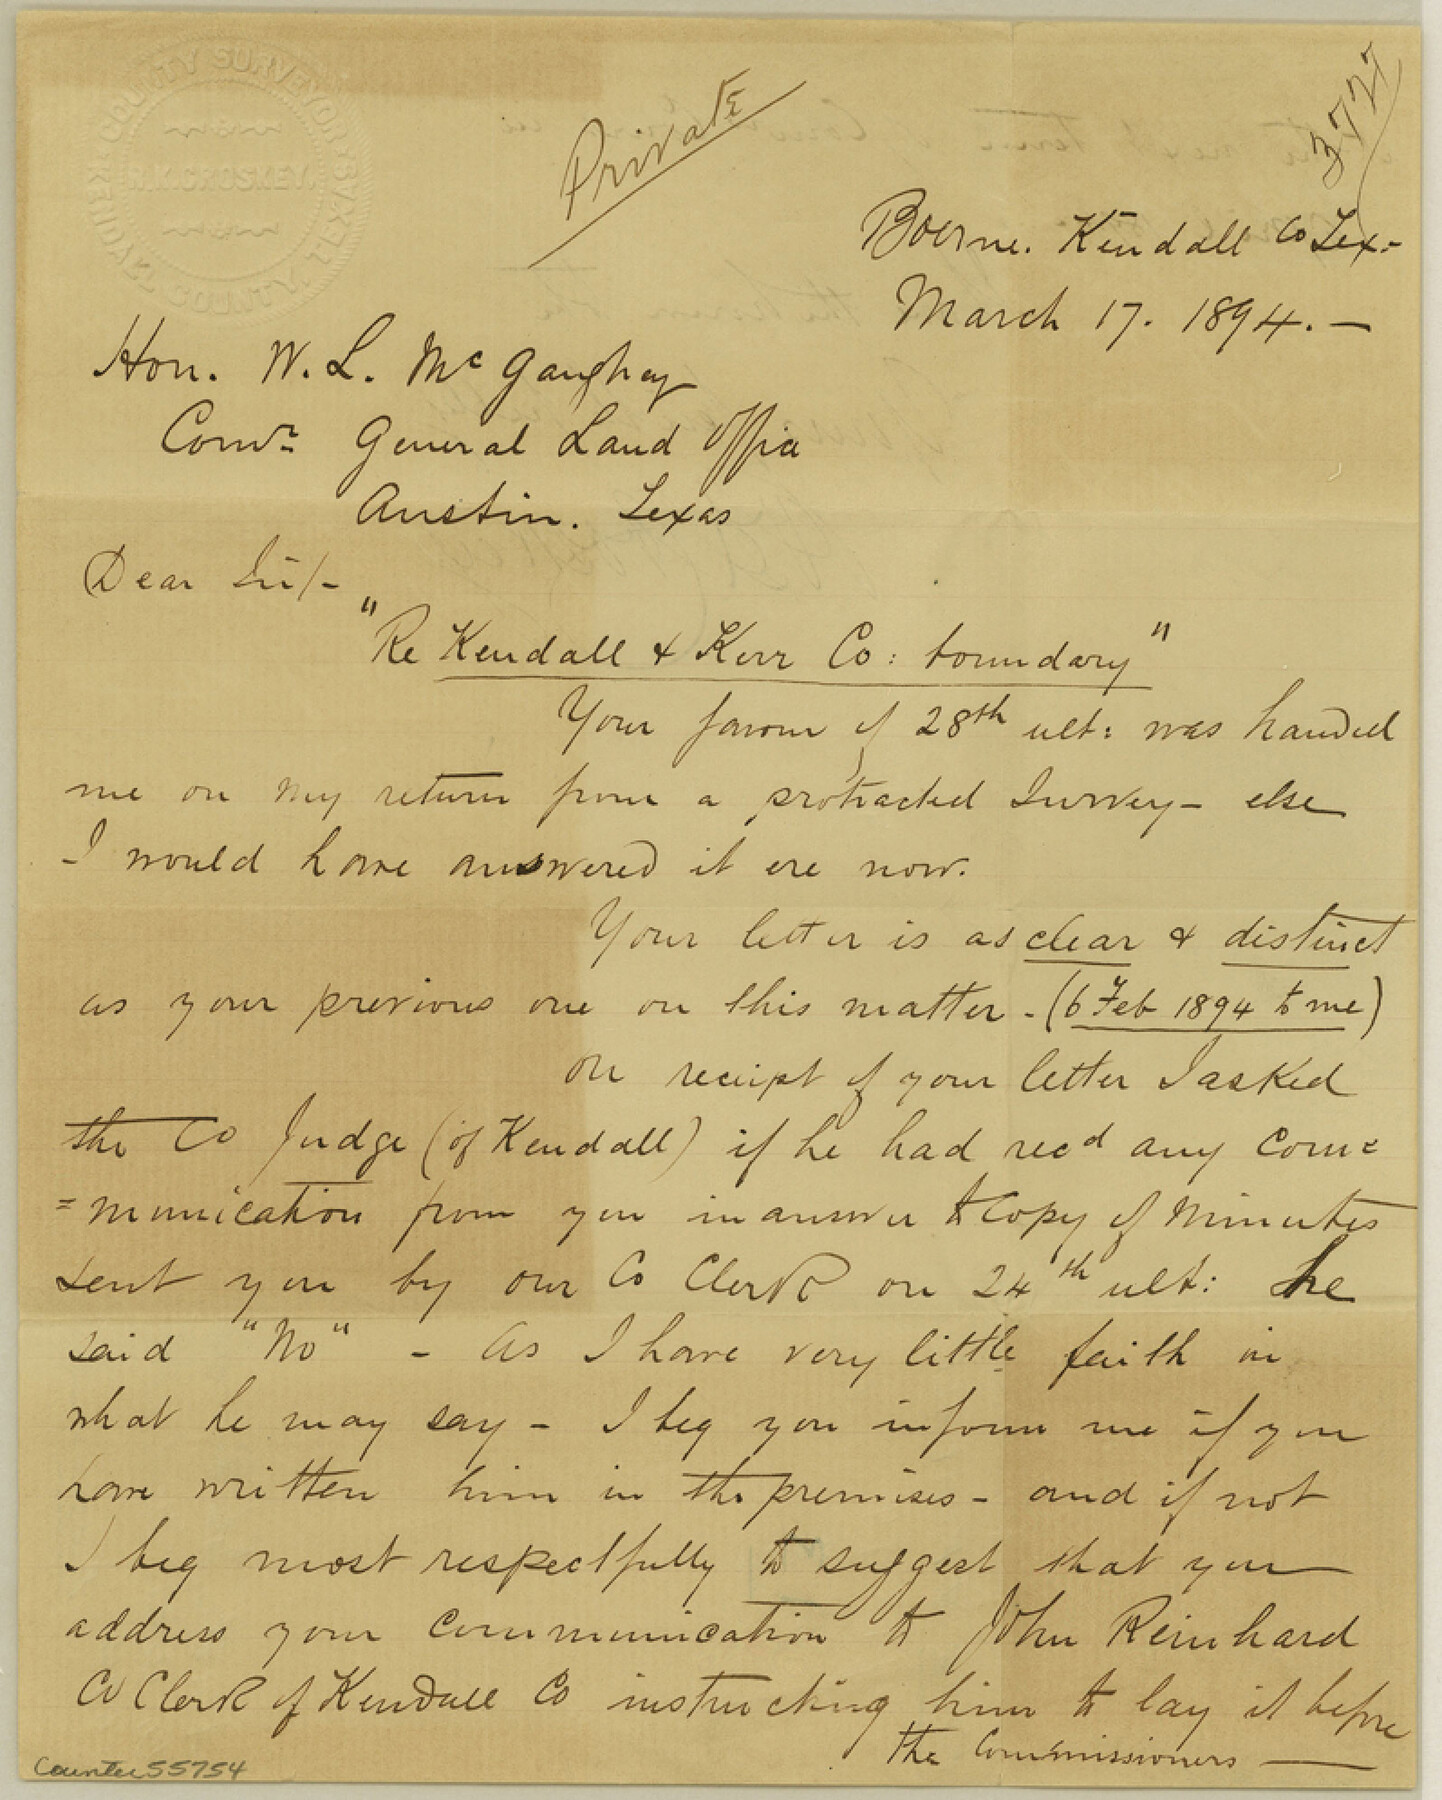 COUNTY SURVEYOR
R.K.CROSKEY.
KENDALL COUNTY, TEXAS
Private
3727
Boerne. Kendall Co Tex-
March 17. 1894. —
Hon. W. L. McGaughey
Comr General Land Office
Austin. Texas
Dear Sir/-
"Re Kendall & Kerr Co: boundary"
Your favour of 28th ult: was handed
me on my return from a protracted Survey - else
I would have answered it ere now.
Your letter is as clear & distinct
as your previous one on this matter - (6 Feb 1894 to me)
On receipt of your letter I asked
the Co Judge (of Kendall) if he had recd any Com=
=munication from you in answer to Copy of Minutes
sent you by our Co Clerk on 24th ult: he
said "No" - As I have very little faith in
what he may say - I beg you inform me if you
have written him in the premises - and if not
I beg most respectfully to suggest that you
address your communication to John Reinhard
Co Clerk of Kendall Co instructing him to lay it before
the Commissioners —
Counter 55754